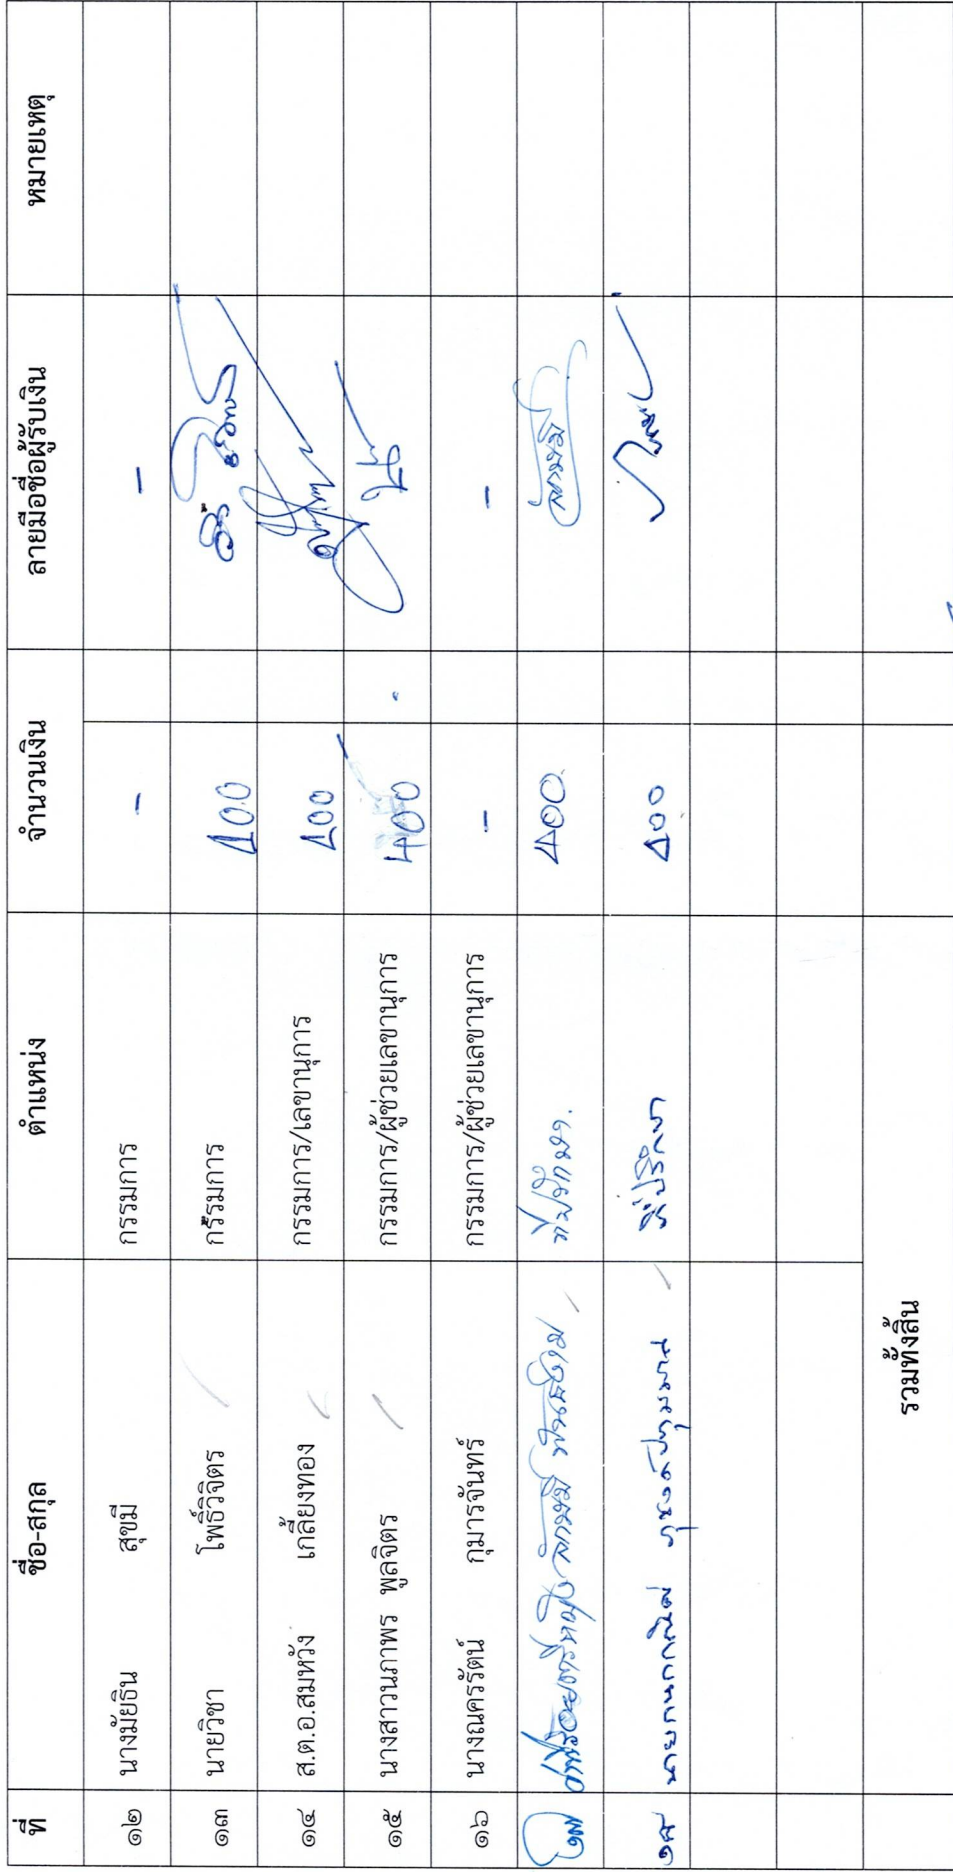 ที่ ชื่อ-สกุล ตำแหน่ง จำนวนเงิน ลายมือชื่อผู้รับเงิน หมายเหตุ
๑๒ นางมัยธิน สุขมี กรรมการ - -
๑๓ นายวิชา โพธิ์วิจิตร กรรมการ 400
๑๔ ส.ต.อ.สมหวัง เกลี้ยงทอง กรรมการ/เลขานุการ 400
๑๕ นางสาวนภาพร พูลจิตร กรรมการ/ผู้ช่วยเลขานุการ 400
๑๖ นางณศรรัตน์ กุมารจันทร์ กรรมการ/ผู้ช่วยเลขานุการ - -
๑๗ 400
๑๘ ที่ปรึกษา 400
รวมทั้งสิ้น